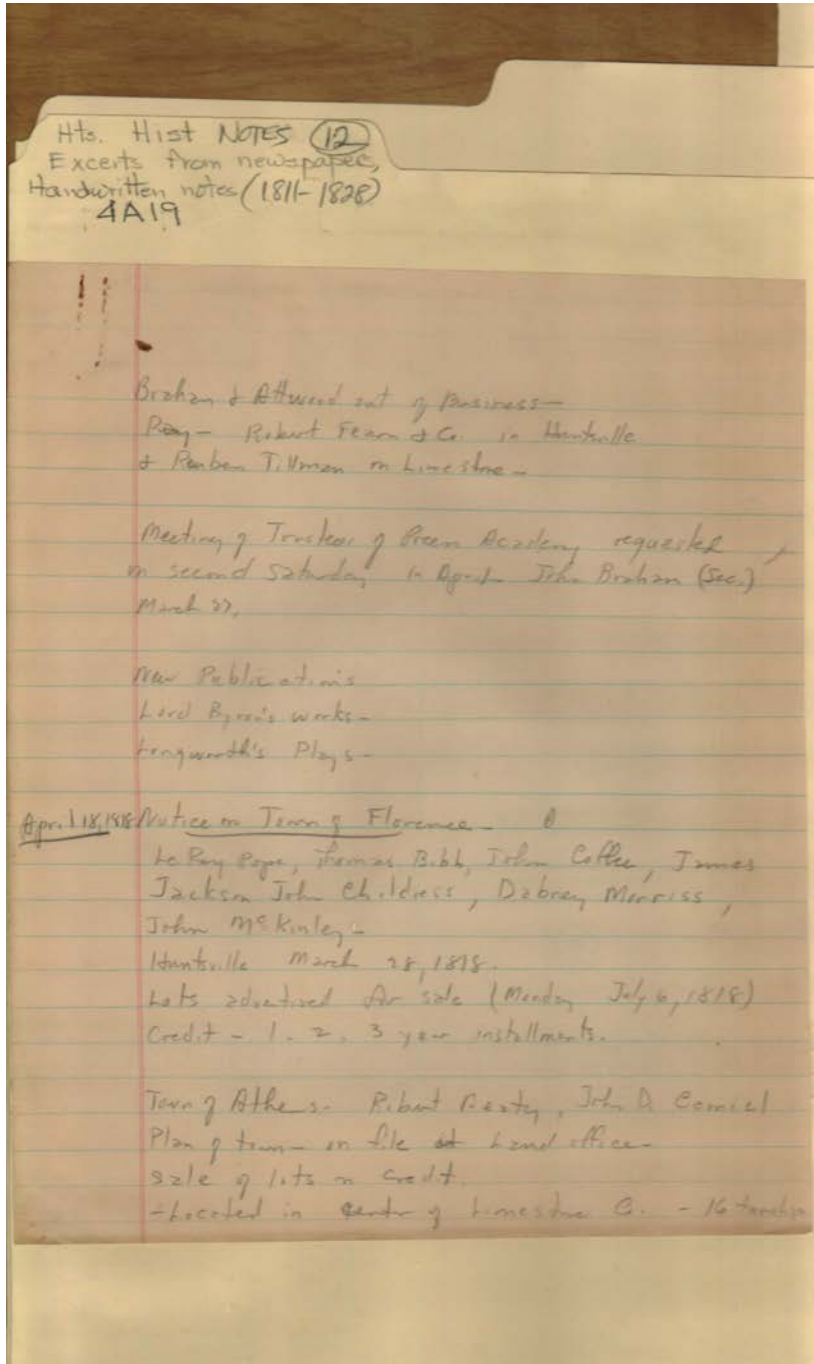 Hts. Hist NOTES 12
Excerts from newspaper,
Handwritten notes (1811-1828)
4A19
Brahan & Attwood out of Business-
Pay- Robert Fearn & Co. in Huntsville
& Reuben Tillman in Limestone-
Meeting of Trustees of Green Academy requested
on second Saturday in April John Brahan (Sec.)
March 27.
New Publications
Lord Byron's works-
Longworth's Plays-
April 18, 1818 Notice on Town of Florence-
Le Roy Pope, Thomas Bibb, John Coffee, James
Jackson John Childress, Dabney Morriss,
John McKinley-
Huntsville March 28, 1818.
Lots advertised for sale (Monday July 6, 1818)
Credit - 1. 2. 3 year installments.
Town of Athens- Robert Beaty, John D.
Plan of town- on file at Land office-
sale of lots on credit.
-Located in center of Limestone C. - 16